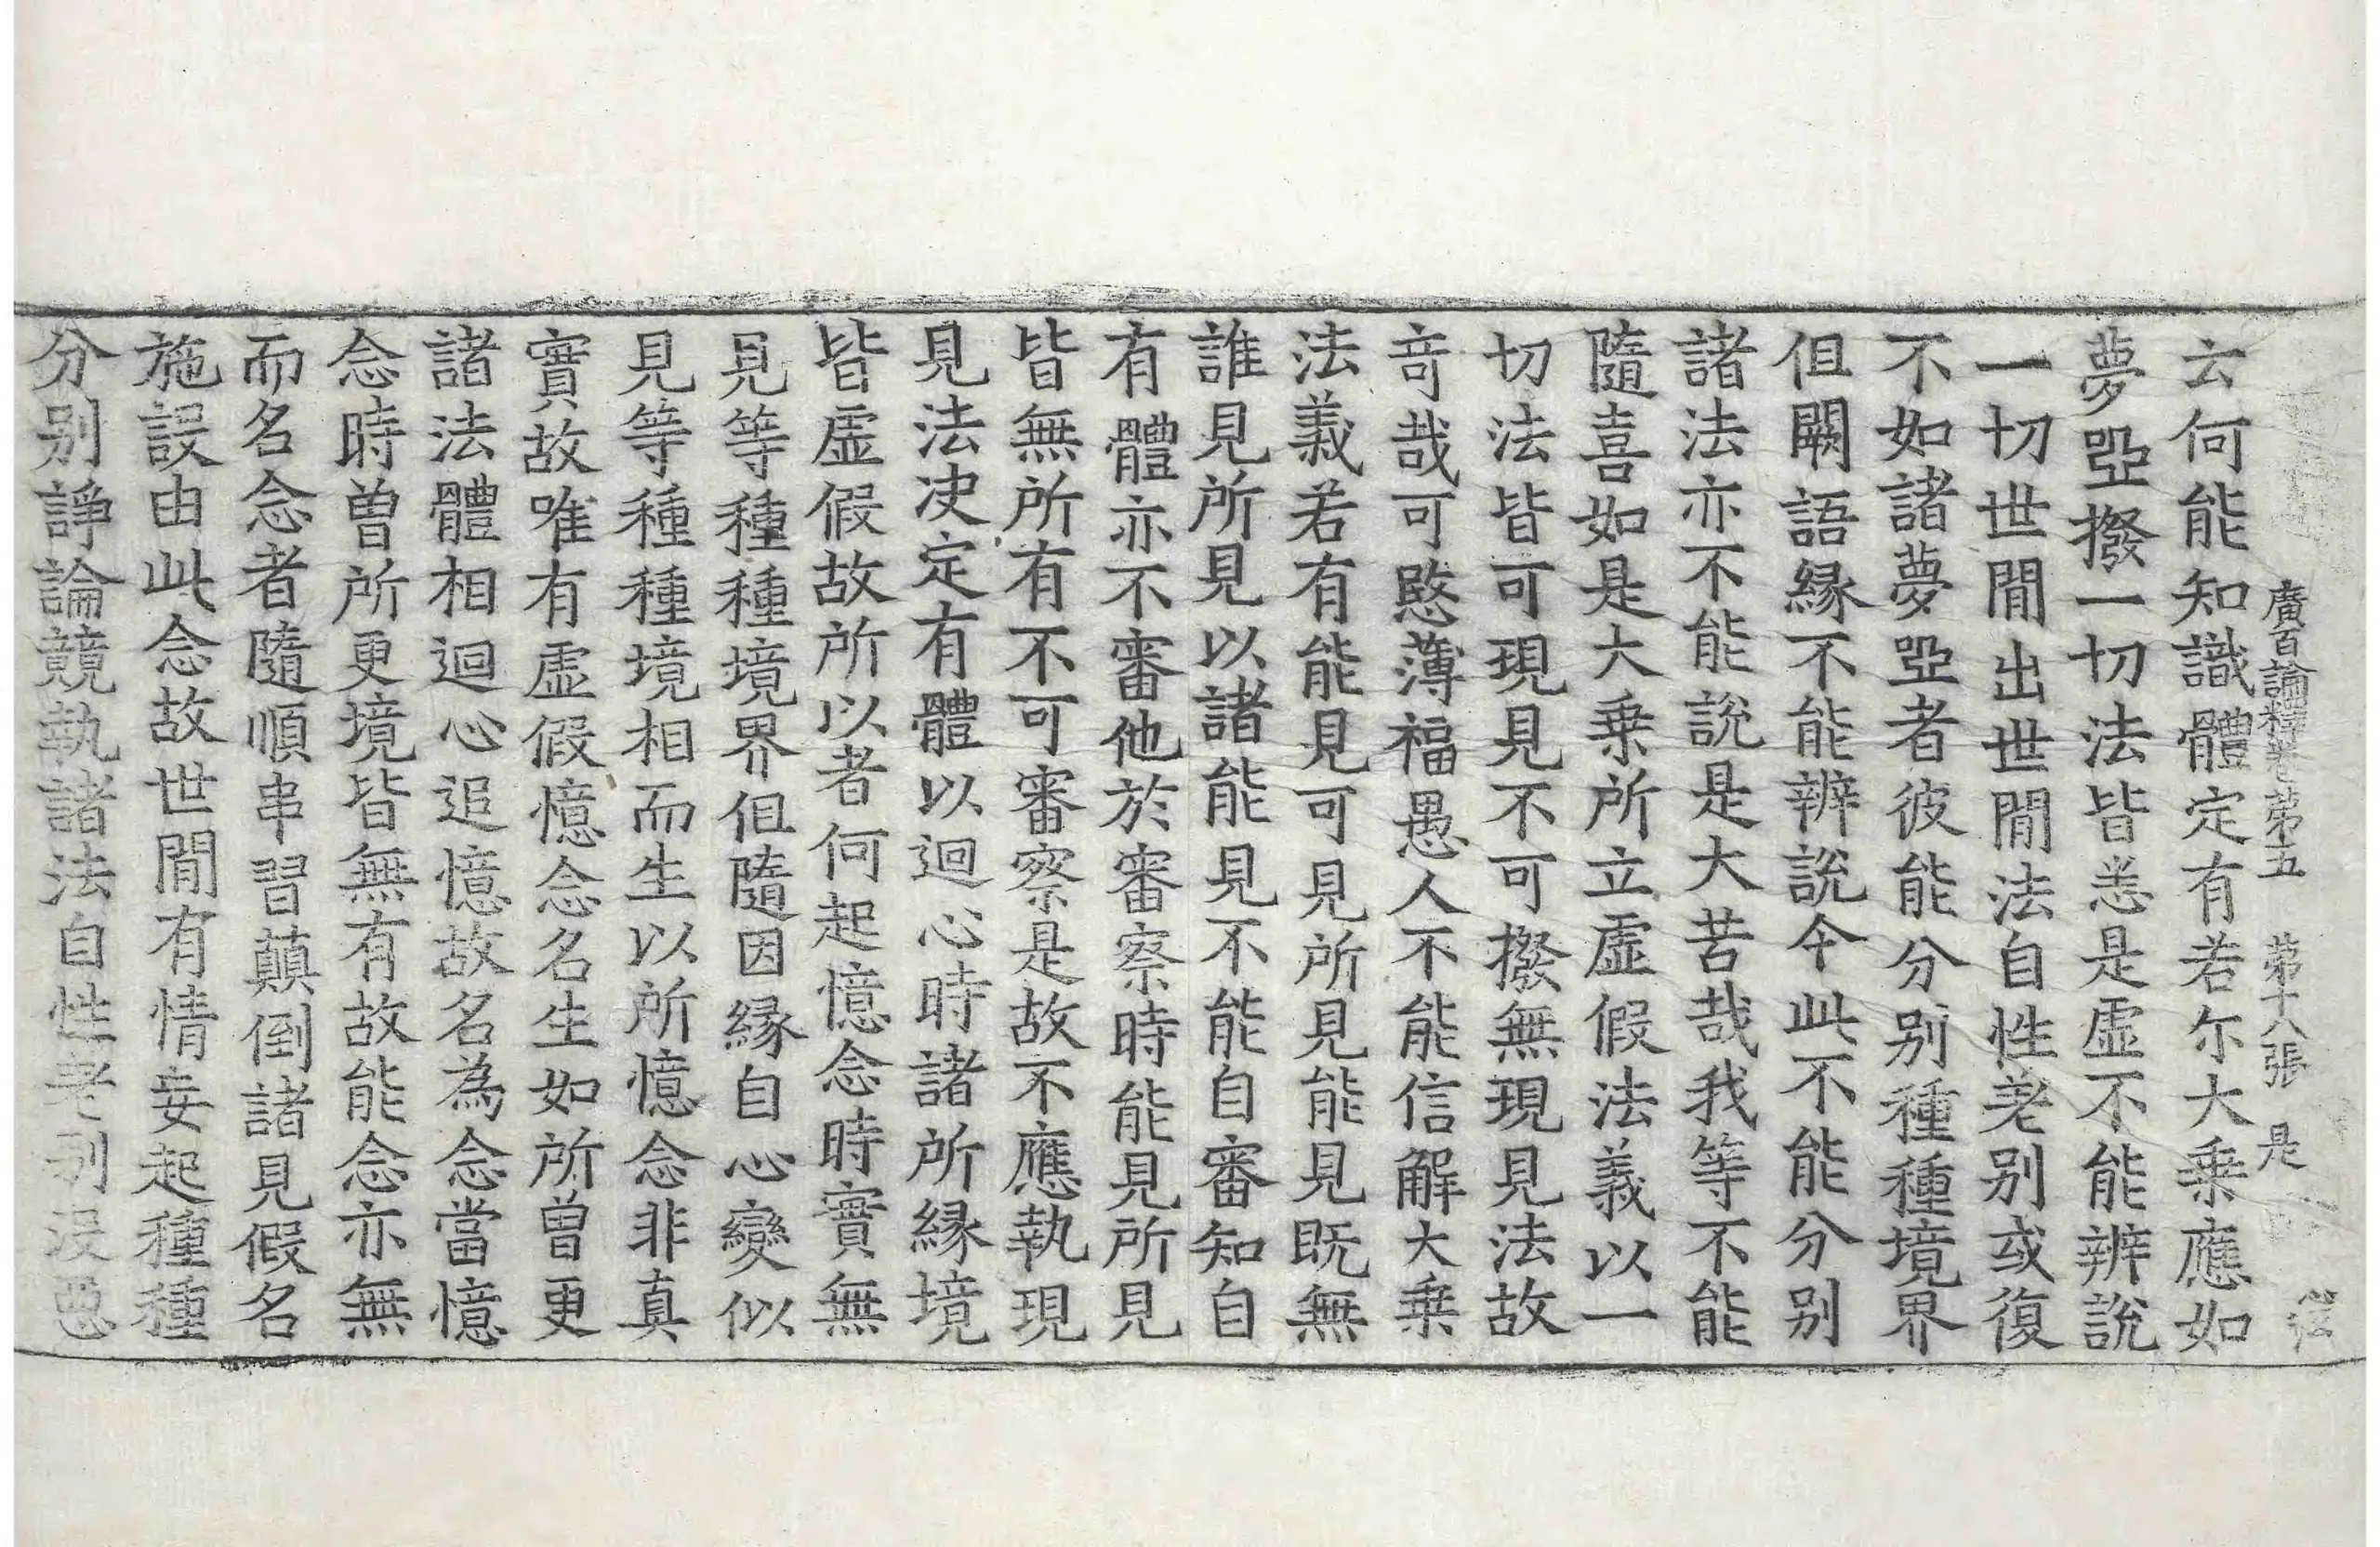 廣百論釋卷苐五 苐十八張 是
云何能知識體定有若尓大乗應如
夢啞撥一切法皆悉是虛不能辨說
一切世間出世間法自性差别或復
不如諸夢啞者彼能分别種種境界
但闕語縁不能辨說今此不能分别
諸法亦不能說是大苦哉我等不能
隨喜如是大乗所立虛假法義以一
切法皆可現見不可撥無現見法故
竒哉可愍薄福愚人不能信解大乗
法義若有能見可見所見能見既無
誰見所見以諸能見不能自審知自
有體亦不審他於審察時能見所見
皆無所有不可審察是故不應執現
見法决定有體以迴心時諸所縁境
皆虛假故所以者何起憶念時實無
見等種種境界但隨因縁自心變似
見等種種境相而生以所憶念非真
實故唯有虛假憶念名生如所曾更
諸法體相迴心追憶故名為念當憶
念時曽所更境皆無有故能念亦無
而名念者隨順串習顛倒諸見假名
施設由此念故世間有情妄起種種
分别諍論競執諸法自性差别没惡